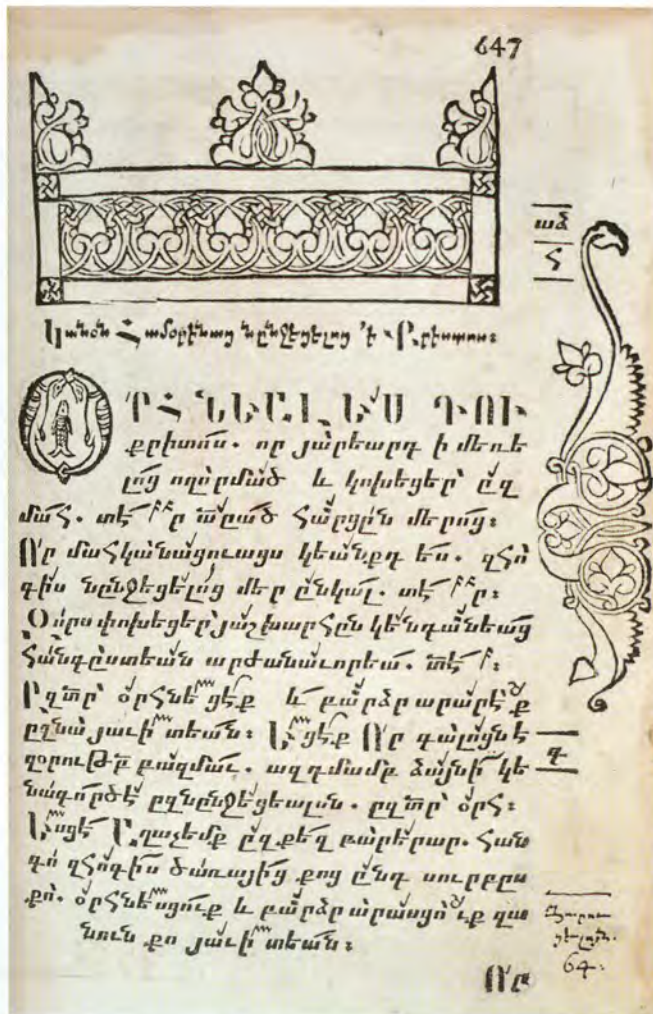 647
աձ
Հ
Կանօն Համօրէնաց նընջեցելոց ՚ի Քրիստոս։
ՕՐՀՆԵԱԼ ԵՍ ԴՈՒ
քրիստոս. որ յարեարդ ի մեռե
լոց ողորմած և կոխեցեր՝ ըզ
մահ. տէր ած հարցըն մերոց։
Որ մահկանացուացս կեանքդ ես. զհո
գիս նընջեցելոց մեր ընկալ. տէր։
Զորս փոխեցեր՝ յաշխարհըն կենդանեաց
հանգըստեան արժանաւորեա. տէ։
Ըզտր՝ օրհնեցէք և բարձր արարէք
ըզնա յաւիտեան։ Ասցէք Որ գալոցն է
գ
զօրութբ բազմաւ. ազդմամբ ձայնի կե
նագործէ ըզնընջեցեալսն. ըզտր՝ օրհ։
Ասցէ Աղաչեմք ըզքեզ բարերար. հան
գո զհոգիս ծառայից քոց ընդ սուրբըս
քո. օրհնեսցուք և բարձր արասցուք զա
նուն քո յաւիտեան։
64։
Որ